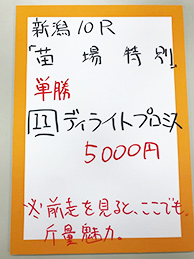 新潟10R
「苗場特別」
単勝
11 ディライトプロミス
5000円
※前走を見ると、ここでも、
斤量魅力。